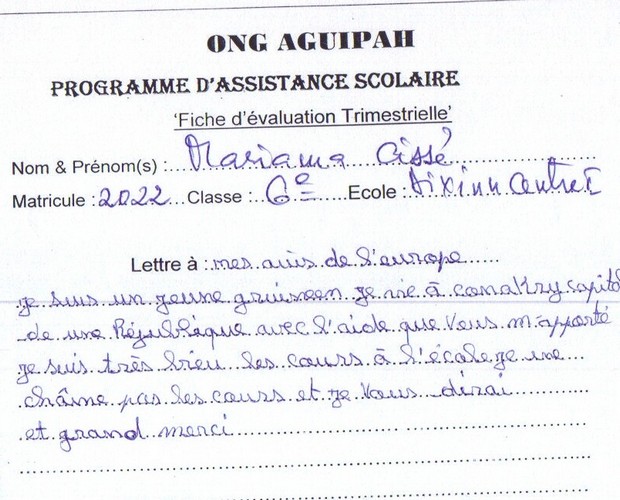 ONG AGUIPAH
PROGRAMME D'ASSISTANCE SCOLAIRE
'Fiche d'évaluation Trimestrielle'
Nom & Prénom(s) : Mariama Cissé
Matricule : 2022 Classe : 6e Ecole : Dixinn Centre I
Lettre à : mes amis de l'europe
je suis un jeune guinéen je vie à conakry capital
de une République avec l'aide que vous m'apporté
je suis très bien les cours à l'école je ne
chaîne pas les cours et je vous dirai
et grand merci